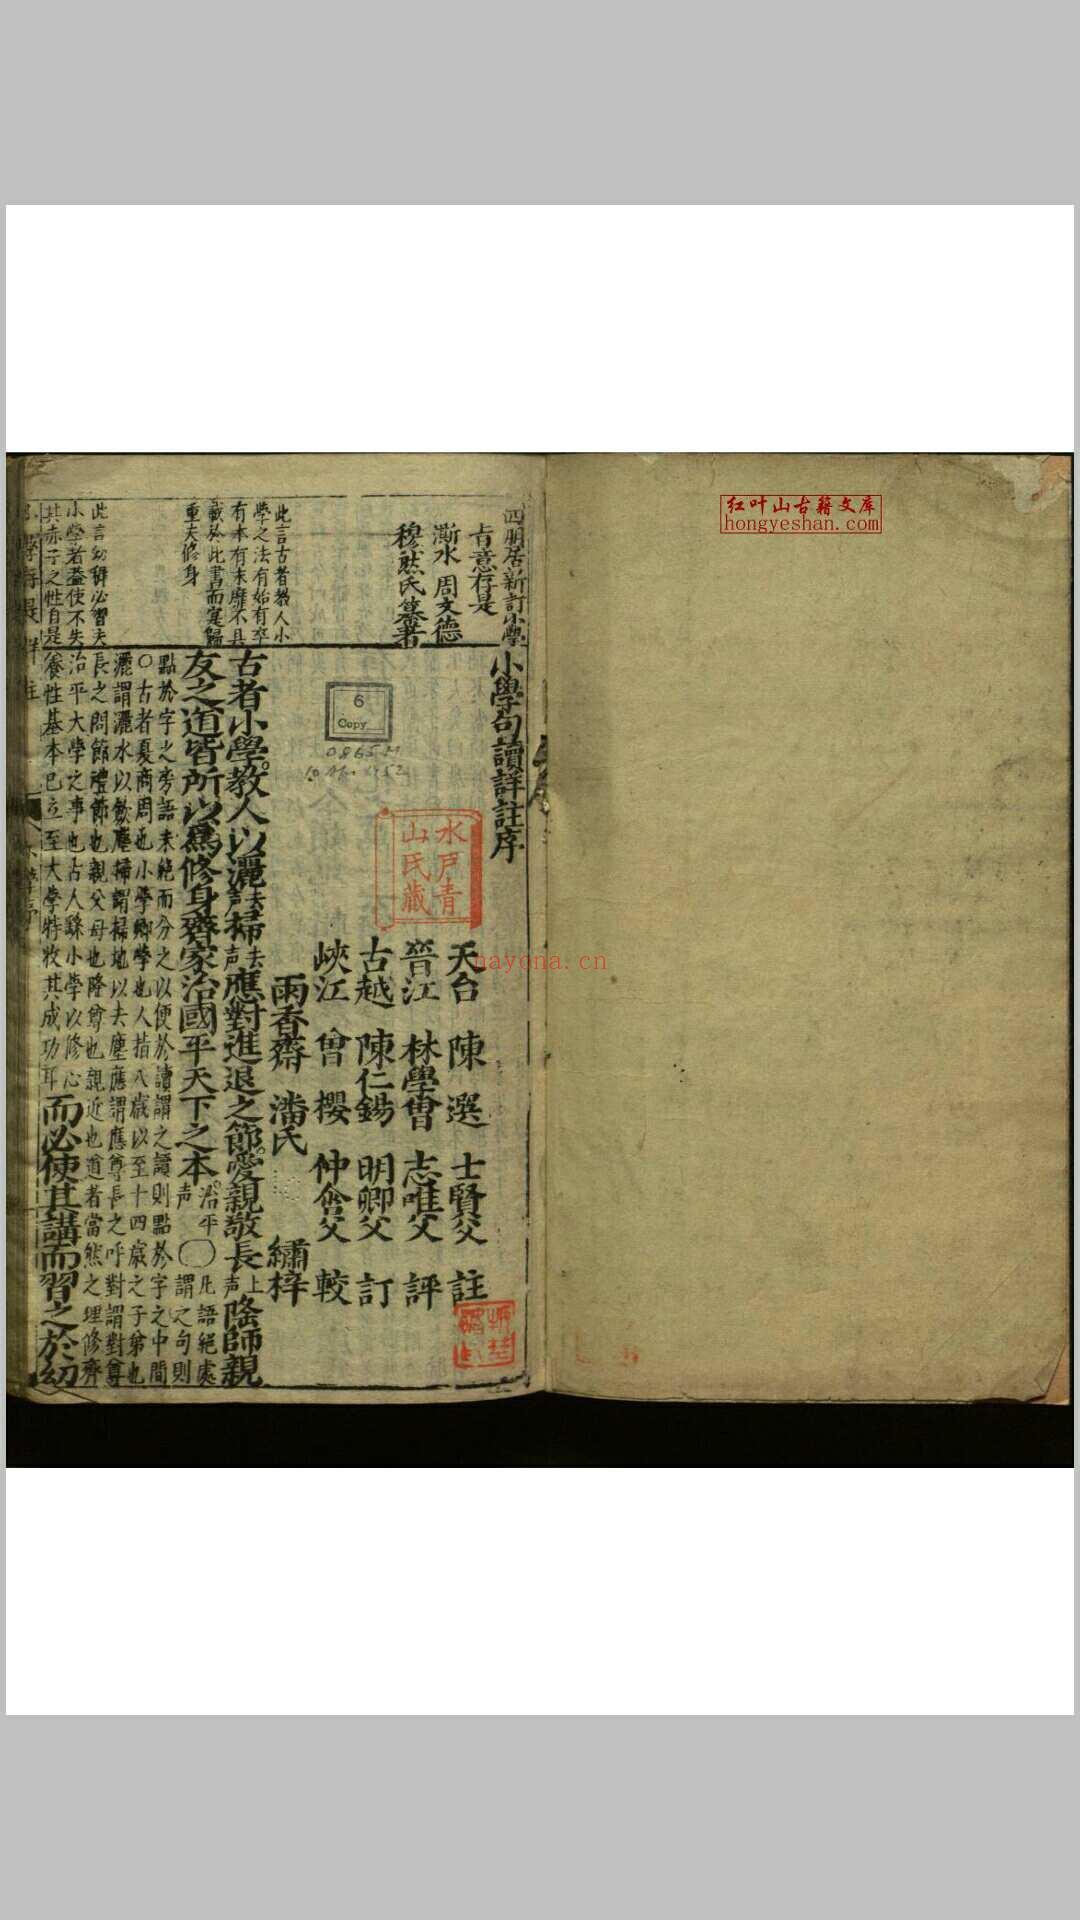 红叶山古籍文库
hongyeshan.com
四明居新訂小學
旨意存是
澵水 周文德
穆然氏纂著
此言古者教人小
學之法有始有卒
有本有末靡不具
載於此書而寔歸
重夫修身
此言幼穉必習夫
小學者葢使不失
其赤子之性自是
小學句讀詳註序
天台 陳 選 士賢父 註
晉江 林學曾 志唯父 評
古越 陳仁錫 明卿父 訂
峽江 曾 櫻 仲含父 較
雨香齋 潘氏 繡梓
古者小學教人以灑去声掃去声應對進退之節愛親敬長上声隆師親
友之道皆所以爲修身齊家治國平天下之本治平声〇凡語絕處謂之句則
點於字之旁語未絕而分之以便於讀謂之讀則點於字之中間
〇古者夏商周也小學鄉學也人指八歲以至十四歲之子弟也
灑謂灑水以歛塵掃謂掃地以去塵應謂應尊長之呼對謂對尊
長之問節禮節也親父母也隆尊也親近也道者當然之理修齊
治平大學之事也古人繇小學以修心
養性基本已立至大學特收其成功耳而必使其講而習之於幼
水戸青
山氏藏
6
Copy
nayona.cn